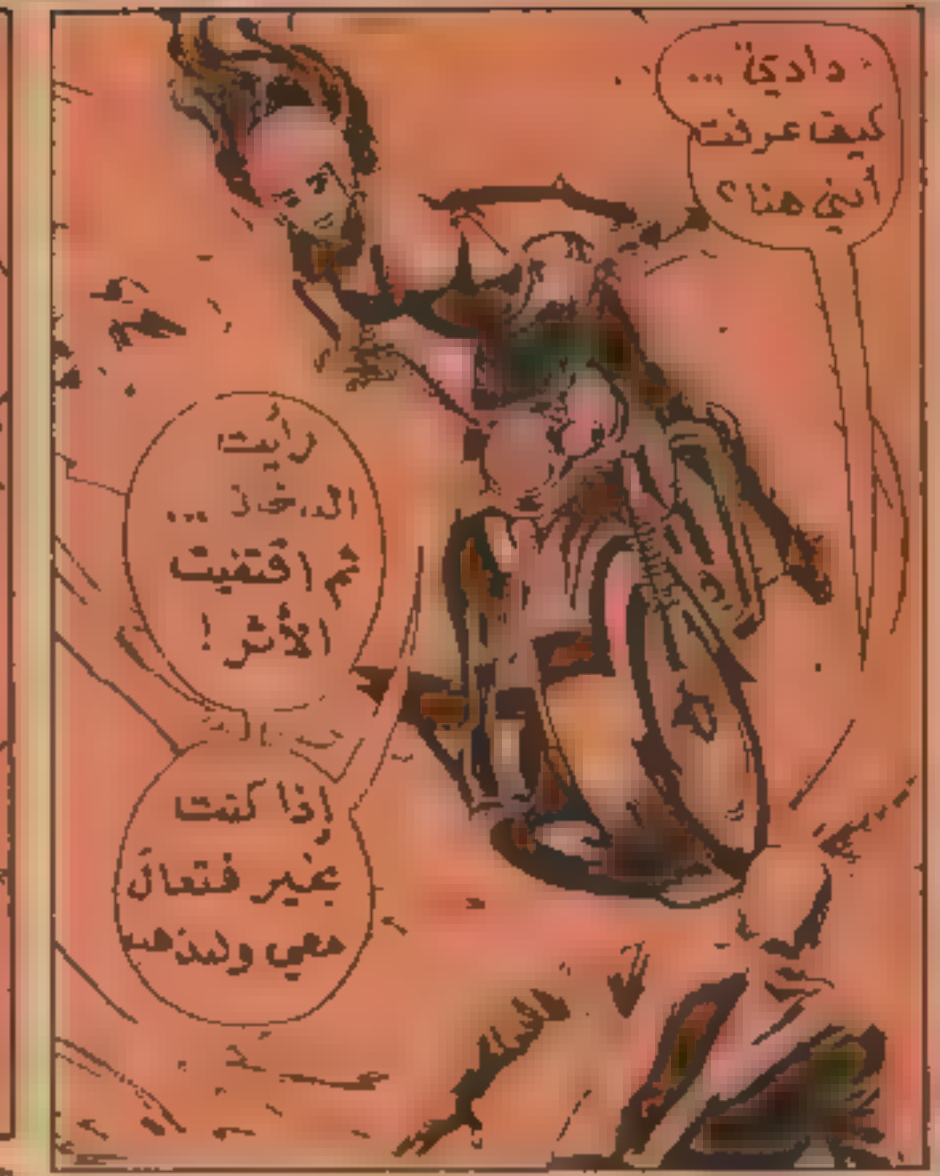 دادي ...
كيف عرفت
أنني هنا؟
رأيت
الدخان ...
ثم اقتفيت
الأثر !
إذا كنت
بخير فتعال
معي ولنذهب